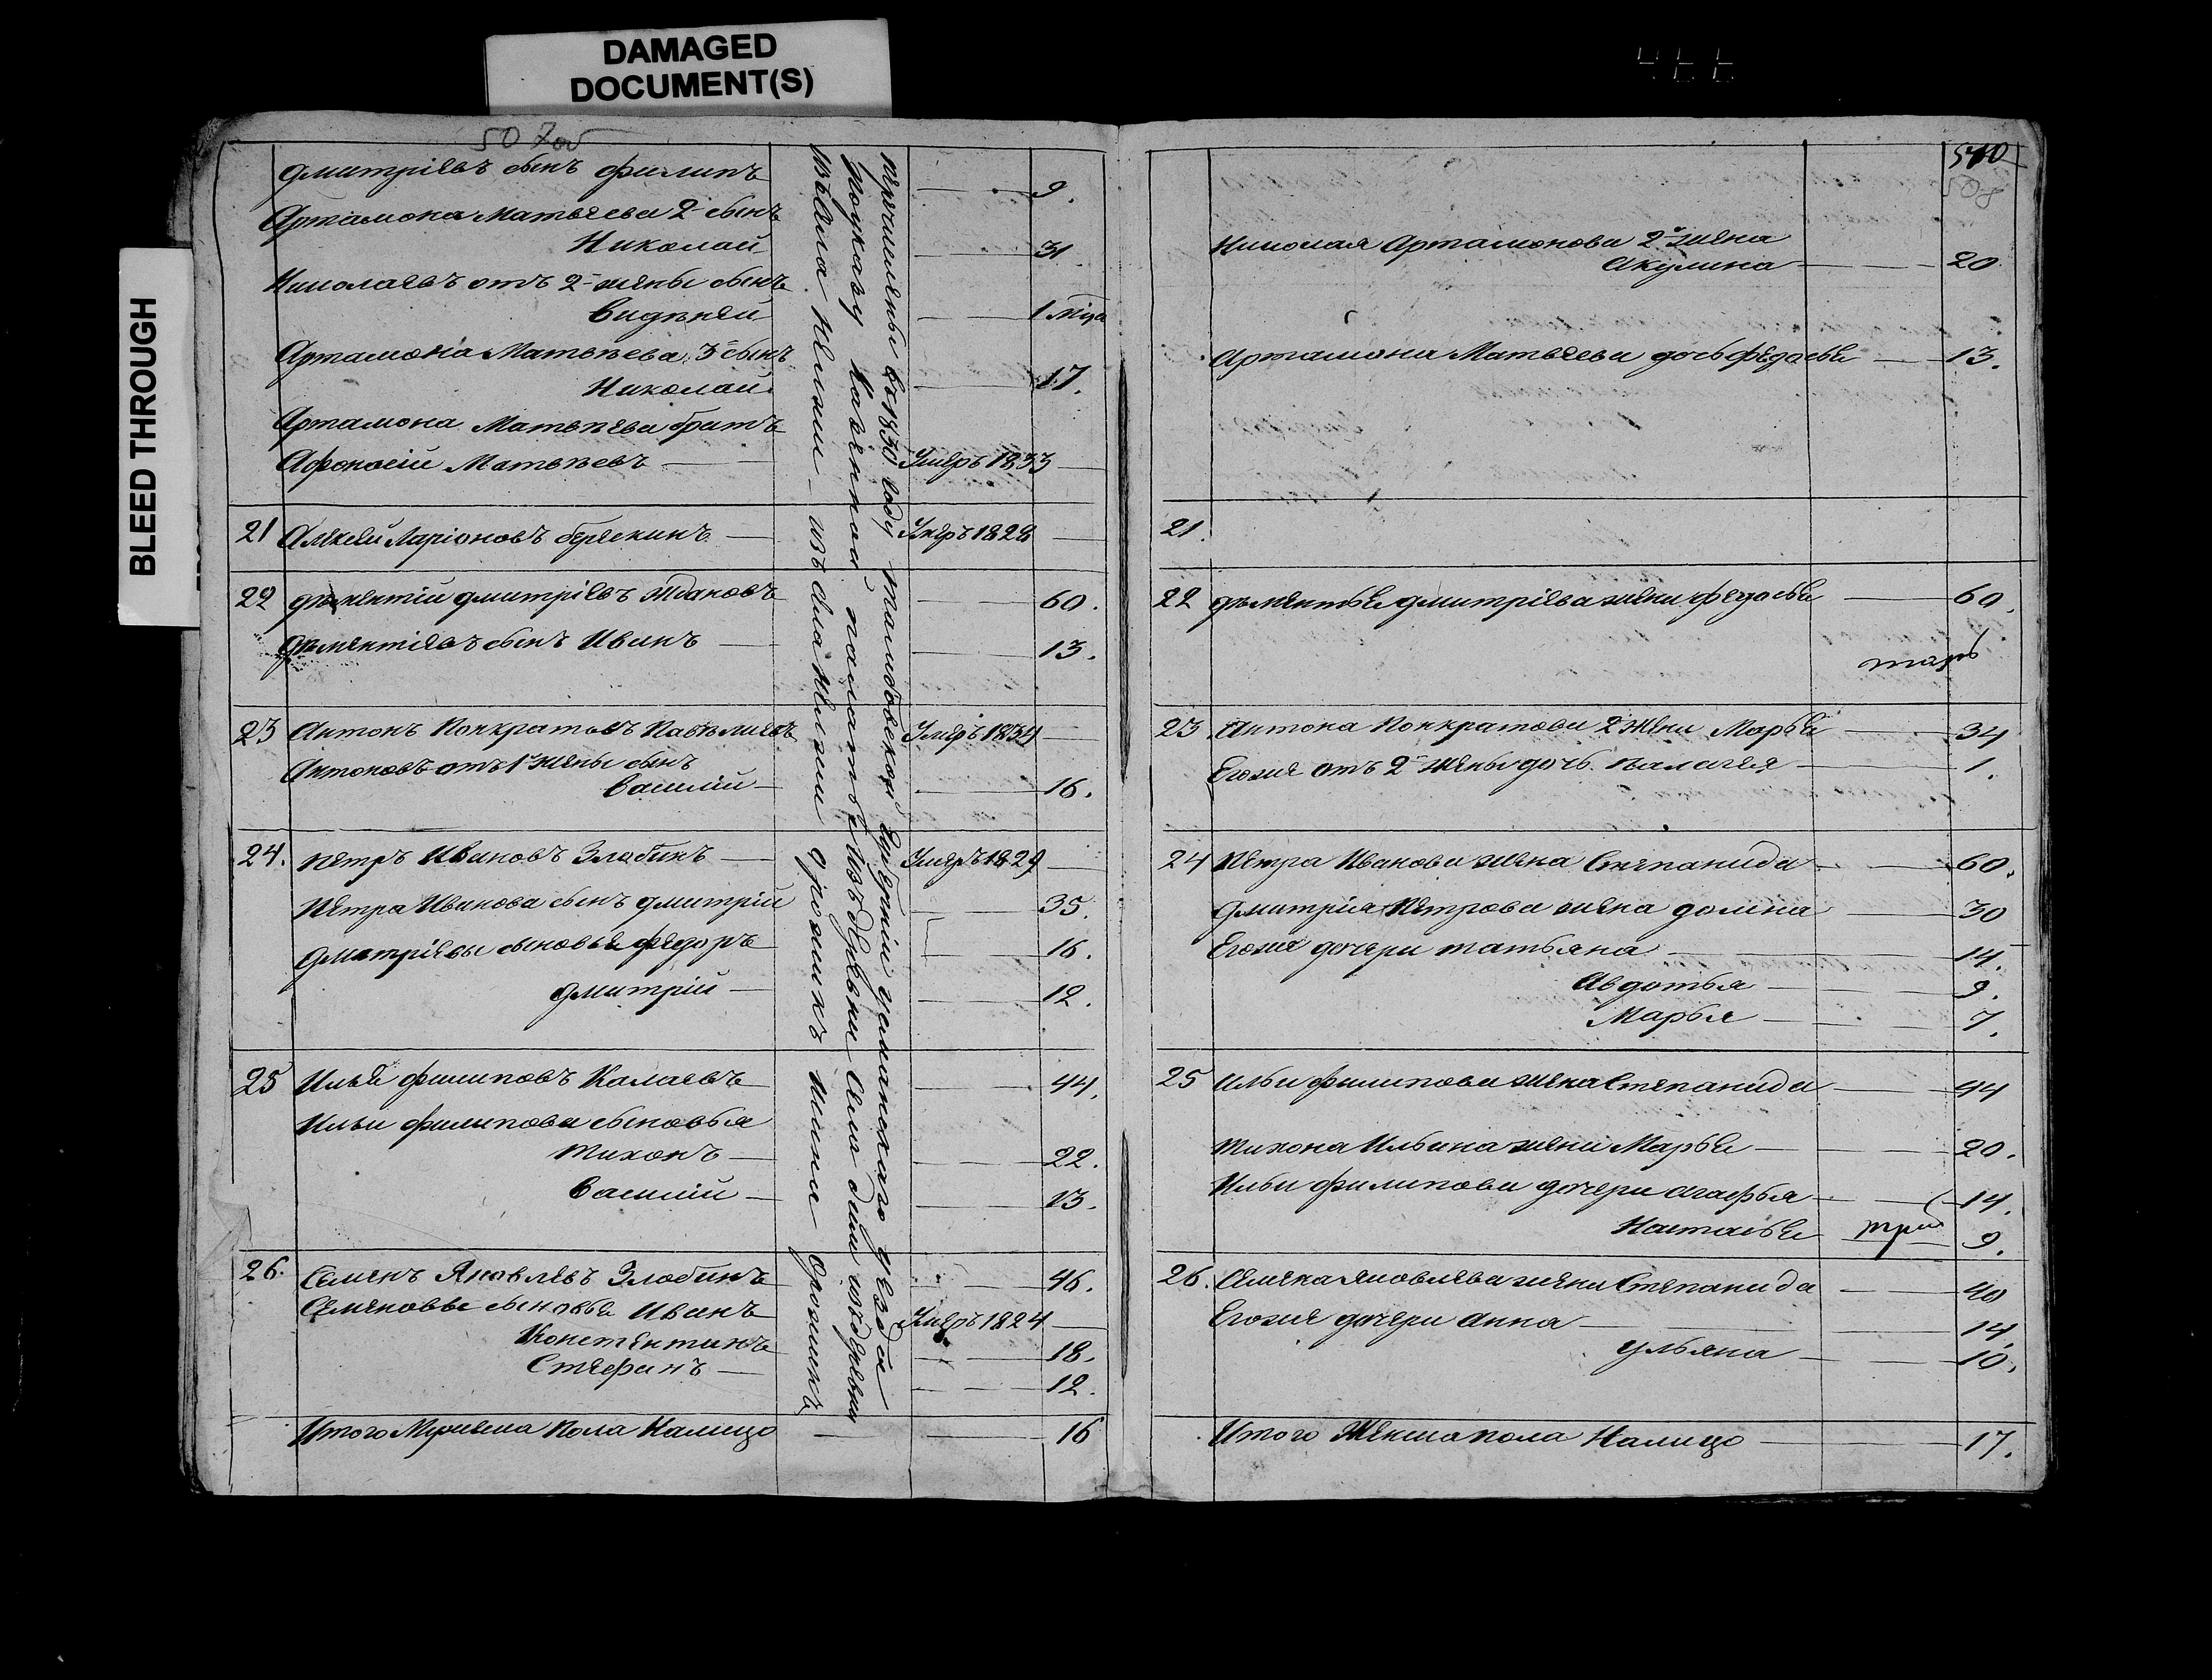 DAMAGED
DOCUMENT(S)
BLEED THROUGH
507об
Дмитріевъ сынъ Филипъ 9.
Артамона Матвеева 2й сынъ
Николай 31
Николаевъ отъ 2й жены сынъ
1 мца
Артамона Матвѣева 3й сынъ
Николай 17.
Артамона Матвѣева братъ
Афонасій Матвѣевъ Умеръ 1833
21 Алексей Ларіоновъ Бряскинъ Умеръ 1828
22 Дѣментій Дмитріевъ Ждановъ 60.
Дѣментіевъ сынъ Иванъ 13.
23 Антонъ Понкратовъ Умеръ 1834
Антоновъ отъ 1й жены сынъ
Василій 16.
24. Петръ Ивановъ Злобинъ Умеръ 1829
Петра Иванова сынъ Дмитрій 35.
Дмитріевы сыновья Федоръ 16.
Дмитрій 12.
25 Илья Филиповъ Калаевъ 44.
Ильи Филипова сыновья
Тихонъ 22.
Василій 13.
26. Семенъ Яковлевъ Злобинъ 46.
Семеновы сыновья Иванъ Умеръ 1824
Констентинъ 18.
Стефанъ 12.
Итого Мужеска пола налицо 16
перечислены въ 1830 году Тамбовской губерніи Усманскаго уезда
поуказу казенной палаты изъ деревни
540
508
Николая Артамонова 2я жена
Акулина 20
Артамона Матвеева дочь Федосья 13.
21.
22 Дѣментья Дмитріева жена Федосья 60.
23 Антона Понкратова 2 жена Марья 34
Егоже отъ 2й жены дочь Палагея 1.
24 Петра Иванова жена Степанида 60.
Дмитрія Петрова жена Домна 30
Егоже дочери Татьяна 14.
Авдотья 9.
Марья 7.
25 Ильи Филипова жена Степанида 44
Тихона Ильина жена Марья 20.
Ильи Филипова дочери Агафья 14.
Настасья 9.
26. Семена Яковлева жена Степанида 40
Егоже дочери Анна 14
Ульяна 10.
Итого Женска пола налицо 17.